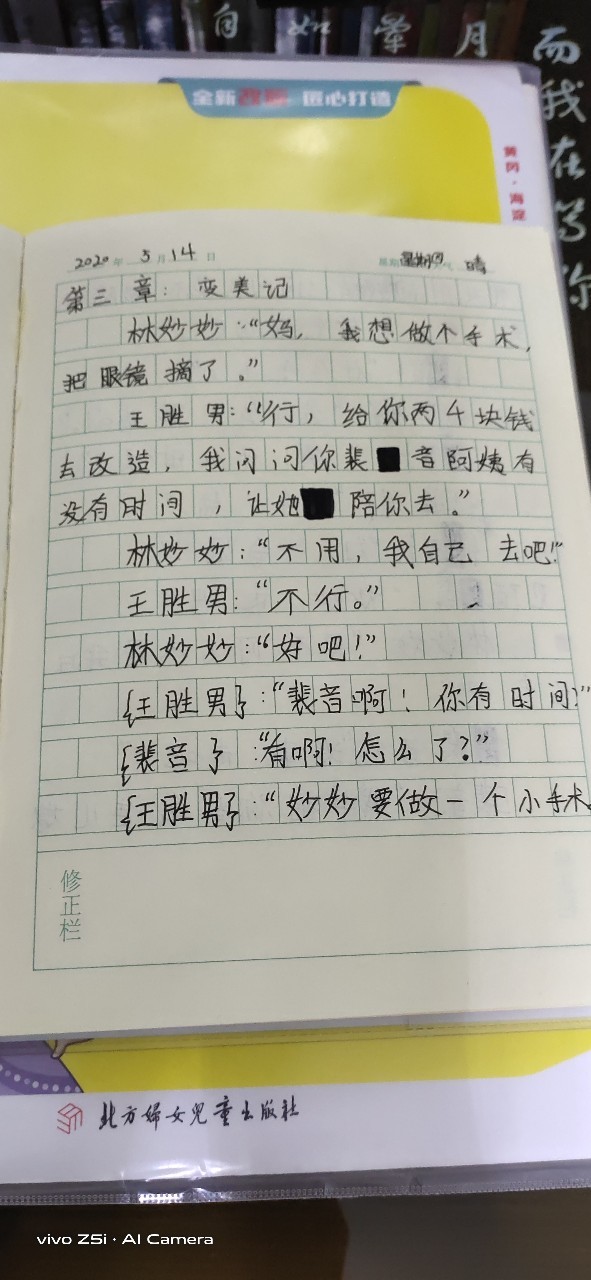 自 如 常 月
而我在等你
全新改版 匠心打造
黄冈·海淀
2020年5月14日 星期四 天气 晴
第三章：变美记
林妙妙：“妈，我想做个手术，
把眼镜摘了。”
王胜男：“行，给你两千块钱
去改造，我问问你裴音阿姨有
没有时间，让她陪你去。”
林妙妙：“不用，我自己去吧!”
王胜男：“不行。”
林妙妙：“好吧!”
{王胜男}：“裴音啊！你有时间?”
{裴音}：“有啊!怎么了?”
{王胜男}：“妙妙要做一个小手术
修正栏
北方妇女儿童出版社
vivo Z5i · AI Camera